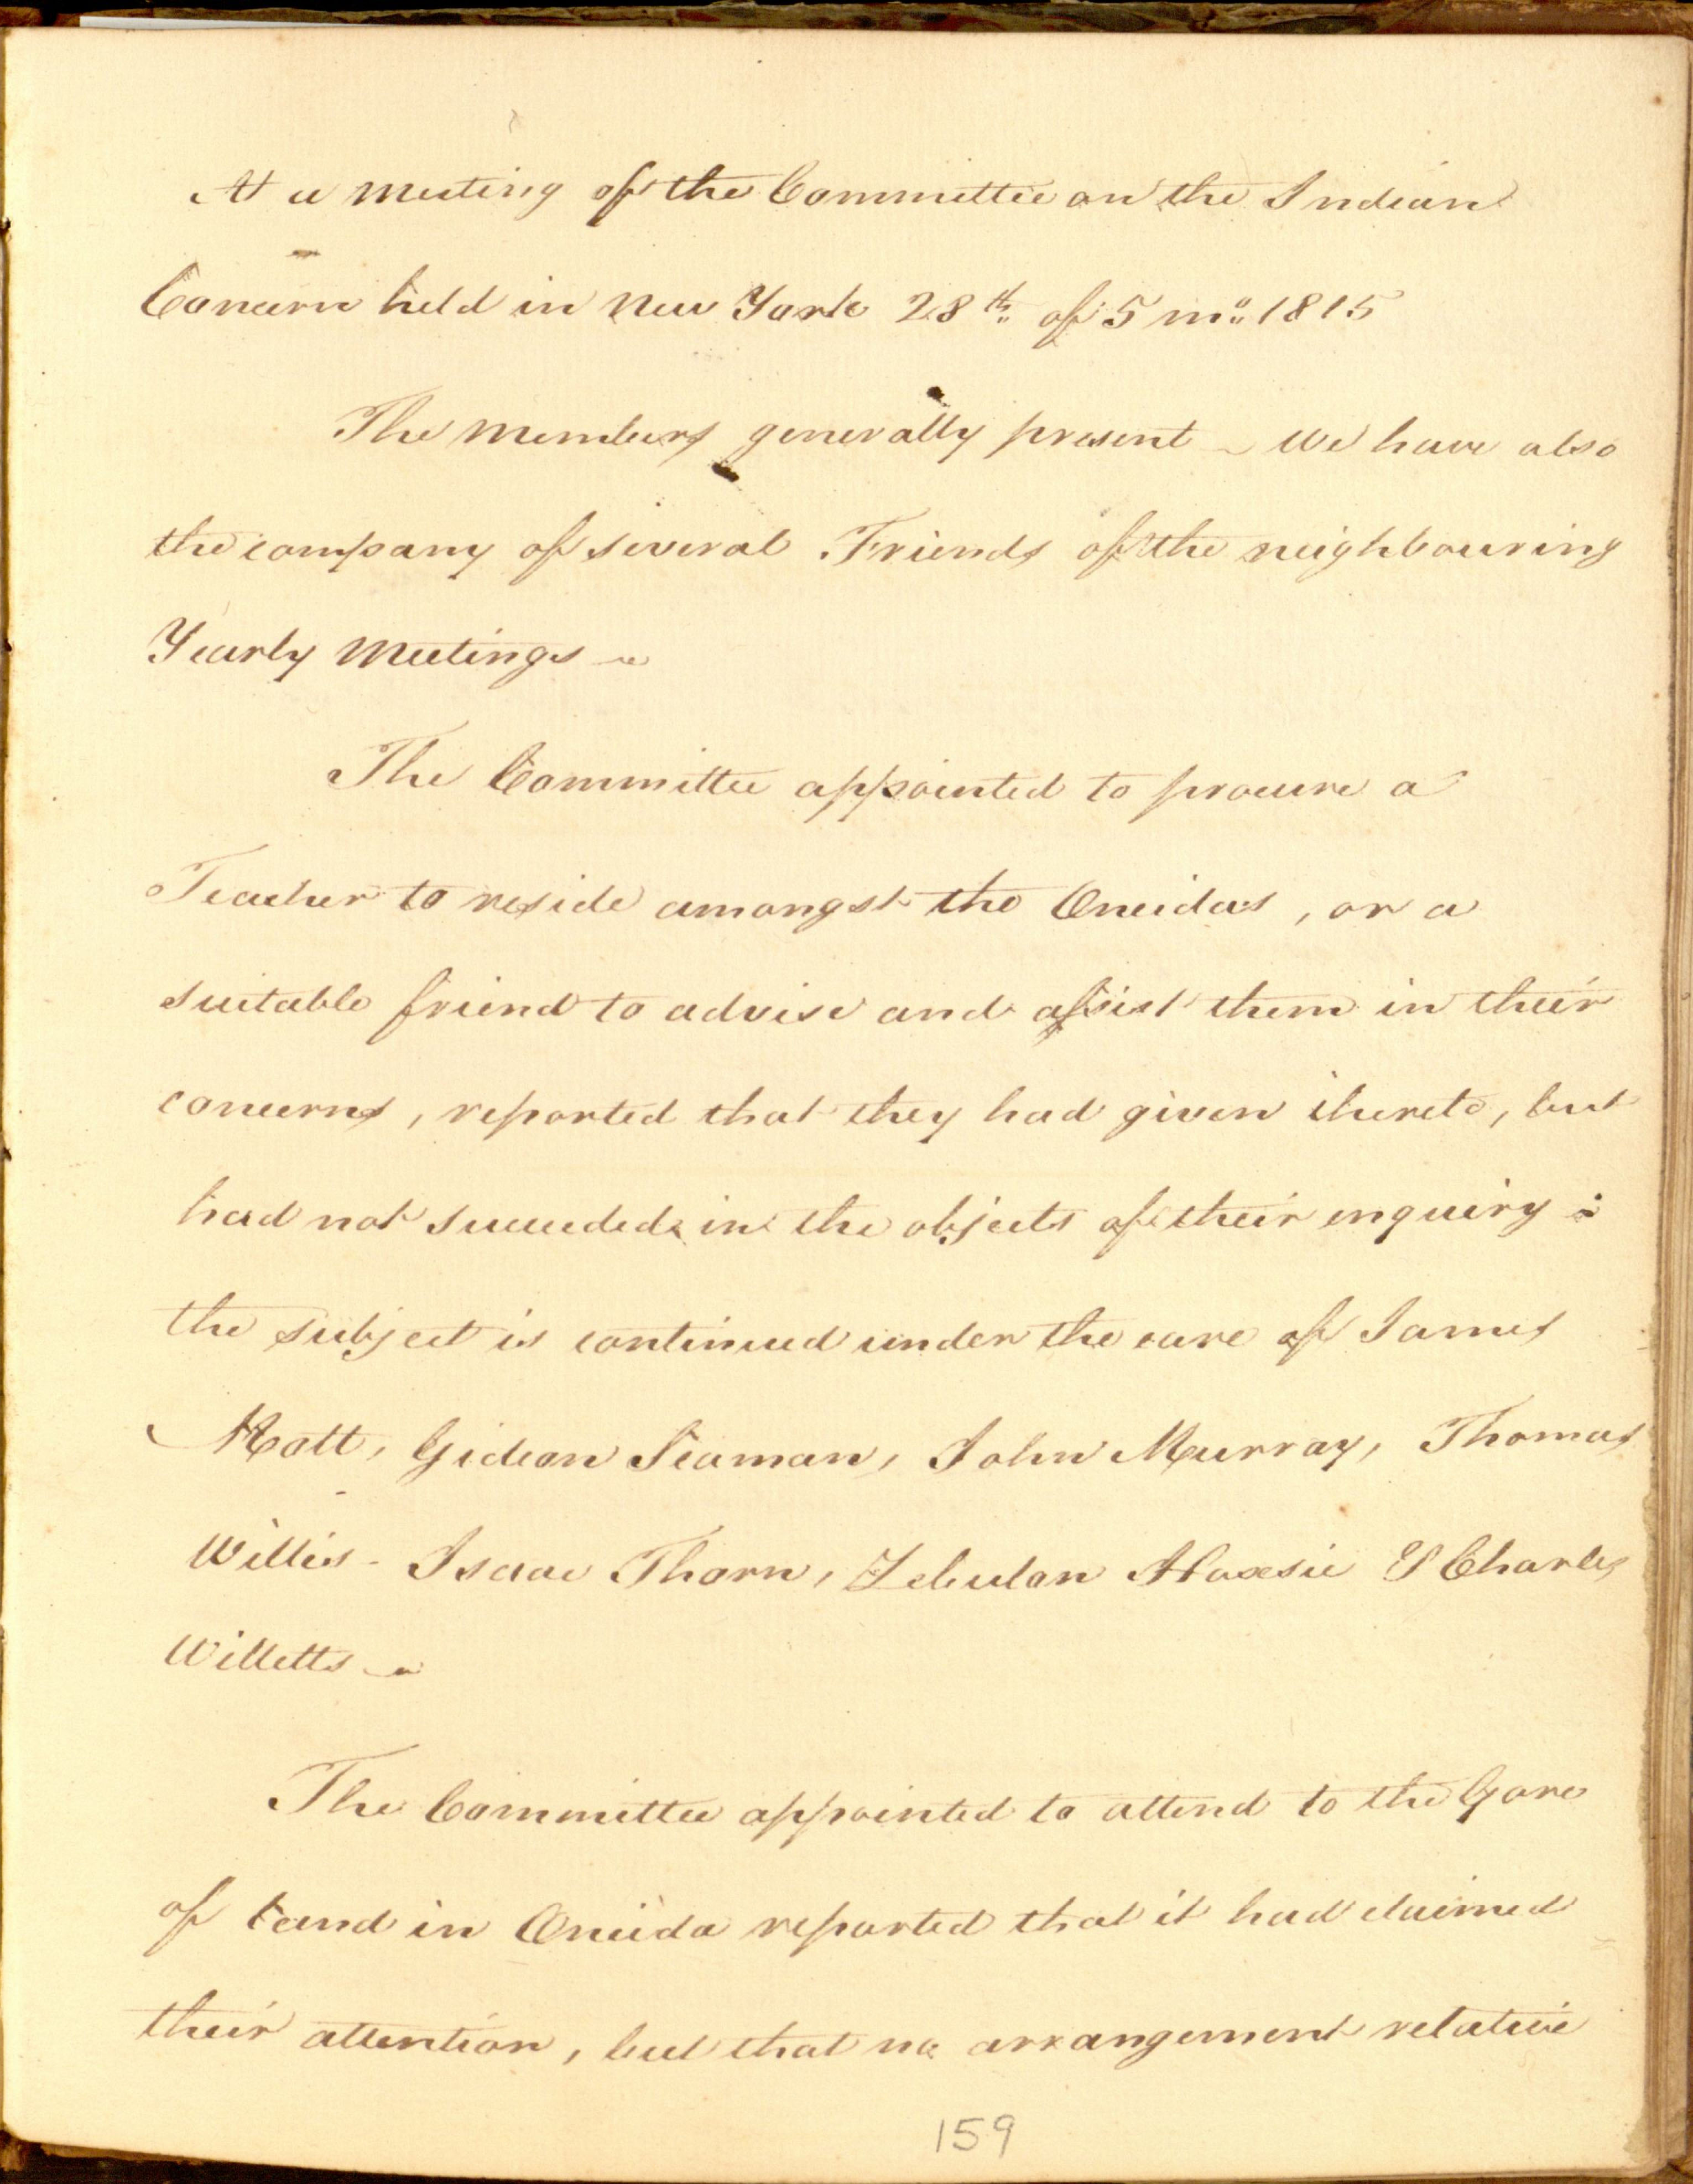 At a meeting of the Committee on the Indian
Concern held in New York 28th of 5 mo 1815
The members generally present – We have also
the company of several Friends of the neighbouring
Yearly Meetings –
The Committee appointed to procure a
Teacher to reside amongst the Oneidas, or a
suitable friend to advise and assist them in their
concerns, reported that they had given thereto, but
had not succeeded in the objects of their enquiry :
the subject is continued under the care of James
Mott, Gideon Seaman, John Murray, Thomas
Willis - Isaac Thorn, Zebulon Hoxsie & Charles
Willetts –
The Committee appointed to attend to the Gore
of Land in Oneida reported that it had claimed
their attention, but that no arrangement relative
159